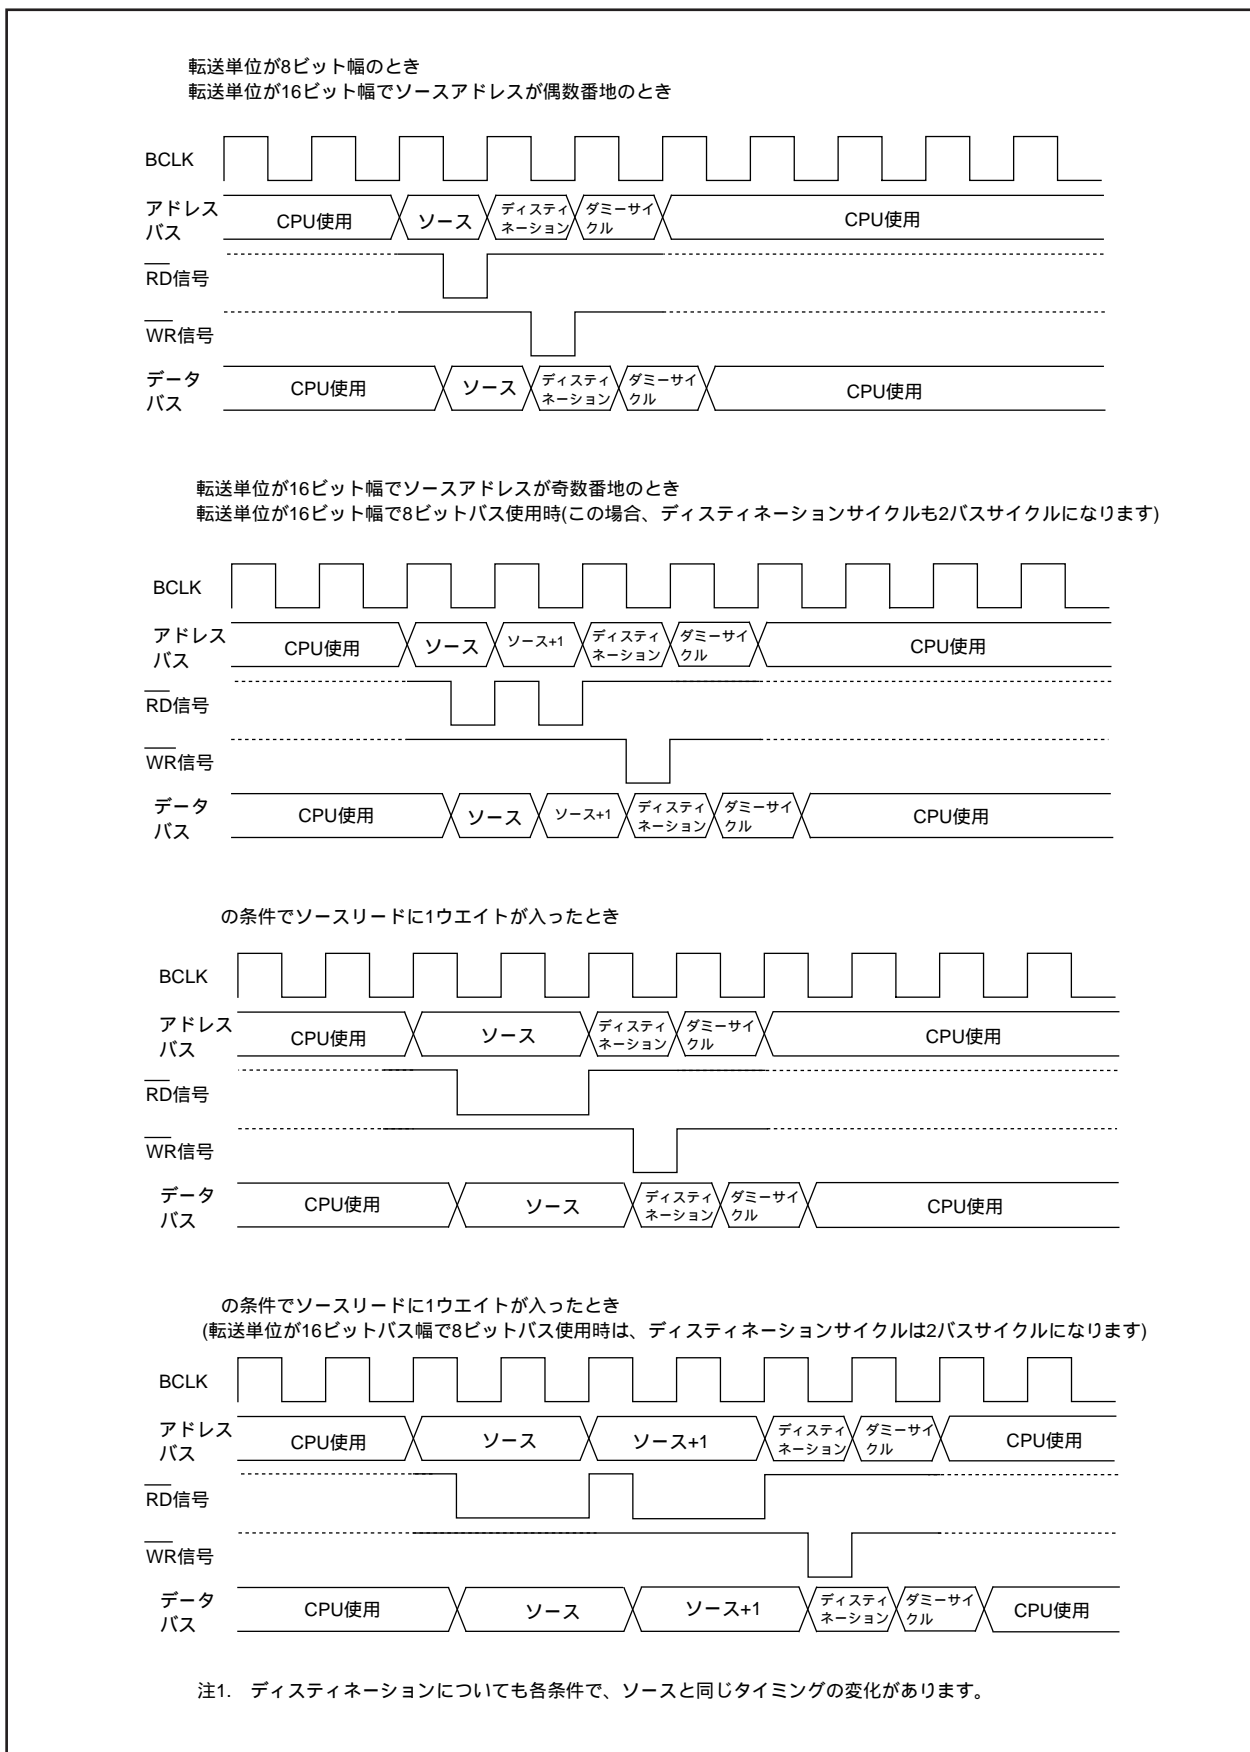 転送単位が8ビット幅のとき
転送単位が16ビット幅でソースアドレスが偶数番地のとき
BCLK
アドレス
バス
CPU使用
ソース
ディスティ
ネーション
ダミーサイ
クル
CPU使用
RD信号
WR信号
データ
バス
CPU使用
ソース
ディスティ
ネーション
ダミーサイ
クル
CPU使用
転送単位が16ビット幅でソースアドレスが奇数番地のとき
転送単位が16ビット幅で8ビットバス使用時(この場合、ディスティネーションサイクルも2バスサイクルになります)
BCLK
アドレス
バス
CPU使用
ソース
ソース+1
ディスティ
ネーション
ダミーサイ
クル
CPU使用
RD信号
WR信号
データ
バス
CPU使用
ソース
ソース+1
ディスティ
ネーション
ダミーサイ
クル
CPU使用
の条件でソースリードに1ウエイトが入ったとき
BCLK
アドレス
バス
CPU使用
ソース
ディスティ
ネーション
ダミーサイ
クル
CPU使用
RD信号
WR信号
データ
バス
CPU使用
ソース
ディスティ
ネーション
ダミーサイ
クル
CPU使用
の条件でソースリードに1ウエイトが入ったとき
(転送単位が16ビットバス幅で8ビットバス使用時は、ディスティネーションサイクルは2バスサイクルになります)
BCLK
アドレス
バス
CPU使用
ソース
ソース+1
ディスティ
ネーション
ダミーサイ
クル
CPU使用
RD信号
WR信号
データ
バス
CPU使用
ソース
ソース+1
ディスティ
ネーション
ダミーサイ
クル
CPU使用
注1. ディスティネーションについても各条件で、ソースと同じタイミングの変化があります。